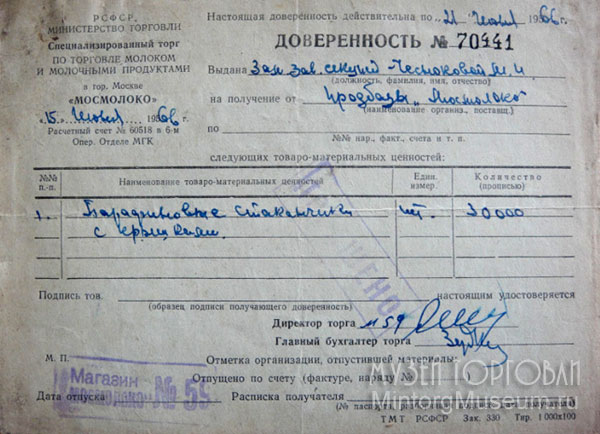 РСФСР
МИНИСТЕРСТВО ТОРГОВЛИ
Специализированный торг
ПО ТОРГОВЛЕ МОЛОКОМ
И МОЛОЧНЫМИ ПРОДУКТАМИ
в гор. Москве
«МОСМОЛОКО»
«15» июня 1966 г.
Расчетный счет № 60518 в 6-м
Опер. Отделе МГК
Настоящая доверенность действительна по „21 июня 1966 г.
ДОВЕРЕННОСТЬ № 70441
Выдана Зам. зав. секции Чесноковой М. И
(должность, фамилия, имя, отчество)
на получение от Продбазы „Мосмолоко"
(наименование организ., поставщ.)
по
(№№ нар., факт., счета и т. п.
следующих товаро-материальных ценностей:
№№ п.-п. Наименование товаро-материальных ценностей Един. измер. Количество (прописью)
1. Парафиновые стаканчики шт. 30000
с крышками.
Подпись тов. настоящим удостоверяется
(образец подписи получающего доверенность)
Директор торга м 59
Главный бухгалтер торга
М. П. Отметка организации, отпустившей материалы:
Отпущено по счету (фактуре, наряду) №
Дата отпуска Расписка получателя
(№ паспорта,
ТМТ РСФСР Зак. 330 Тир. 1 000х100
Магазин
«Мосмолоко» № 59
МУЗЕЙ ТОРГОВЛИ
MintorgMuseum.ru